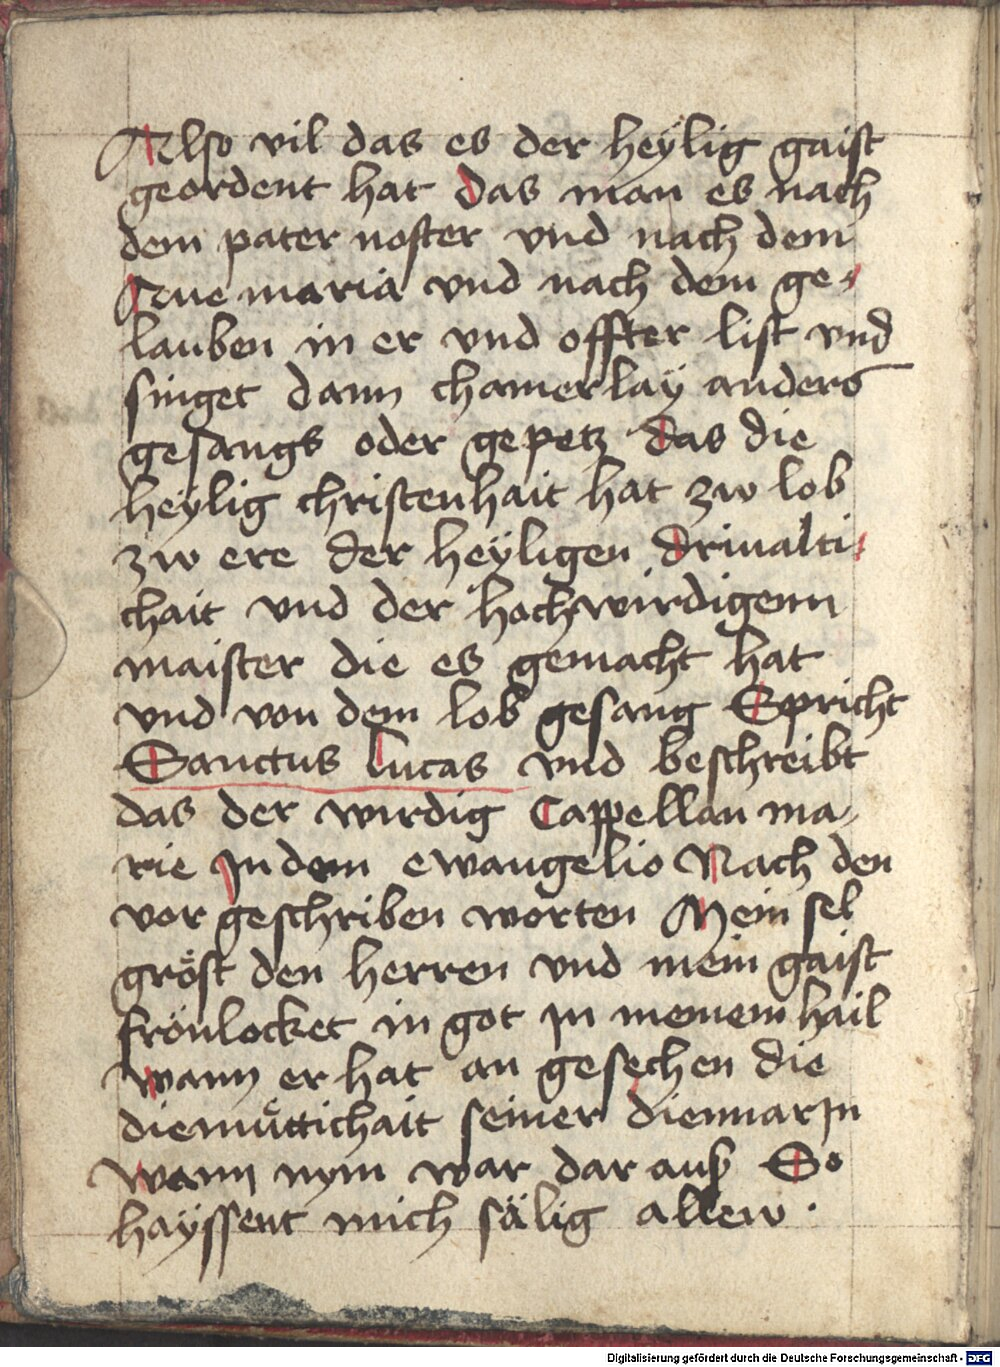 Also vil das es der heÿlig gaist
geordent hat Das man es nach
dem pater noster vnd nach dem
Aue maria vnd nach dem ge-
lauben in er vnd offter list vnd
singet dann chamerlaÿ anders
gesangs oder gepetz das die
heÿlig christenhait hat zw lob
zw ere der heÿligen driualti-
chait vnd der hochwirdigenn
maister die es gemacht hat
vnd von dem lob gesang Spricht
Sanctus lucas vnd beschreibt
das der wirdig Cappellan ma-
rie In dem ewangelio Nach den
vor geschriben worten Mein sel
gröst den herren vnd mein gaist
frönlocket in got in meinem hail
wann er hat an gesechen die
diemüttichait seiner diennarin
wann nym war dar auß So
haÿssent mich sälig allew ·
Digitalisierung gefördert durch die Deutsche Forschungsgemeinschaft - DFG